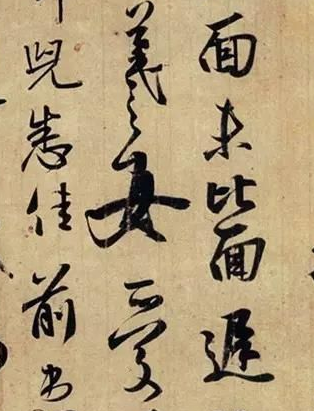 面未比面遲
羲之女愛
兒悉佳前患